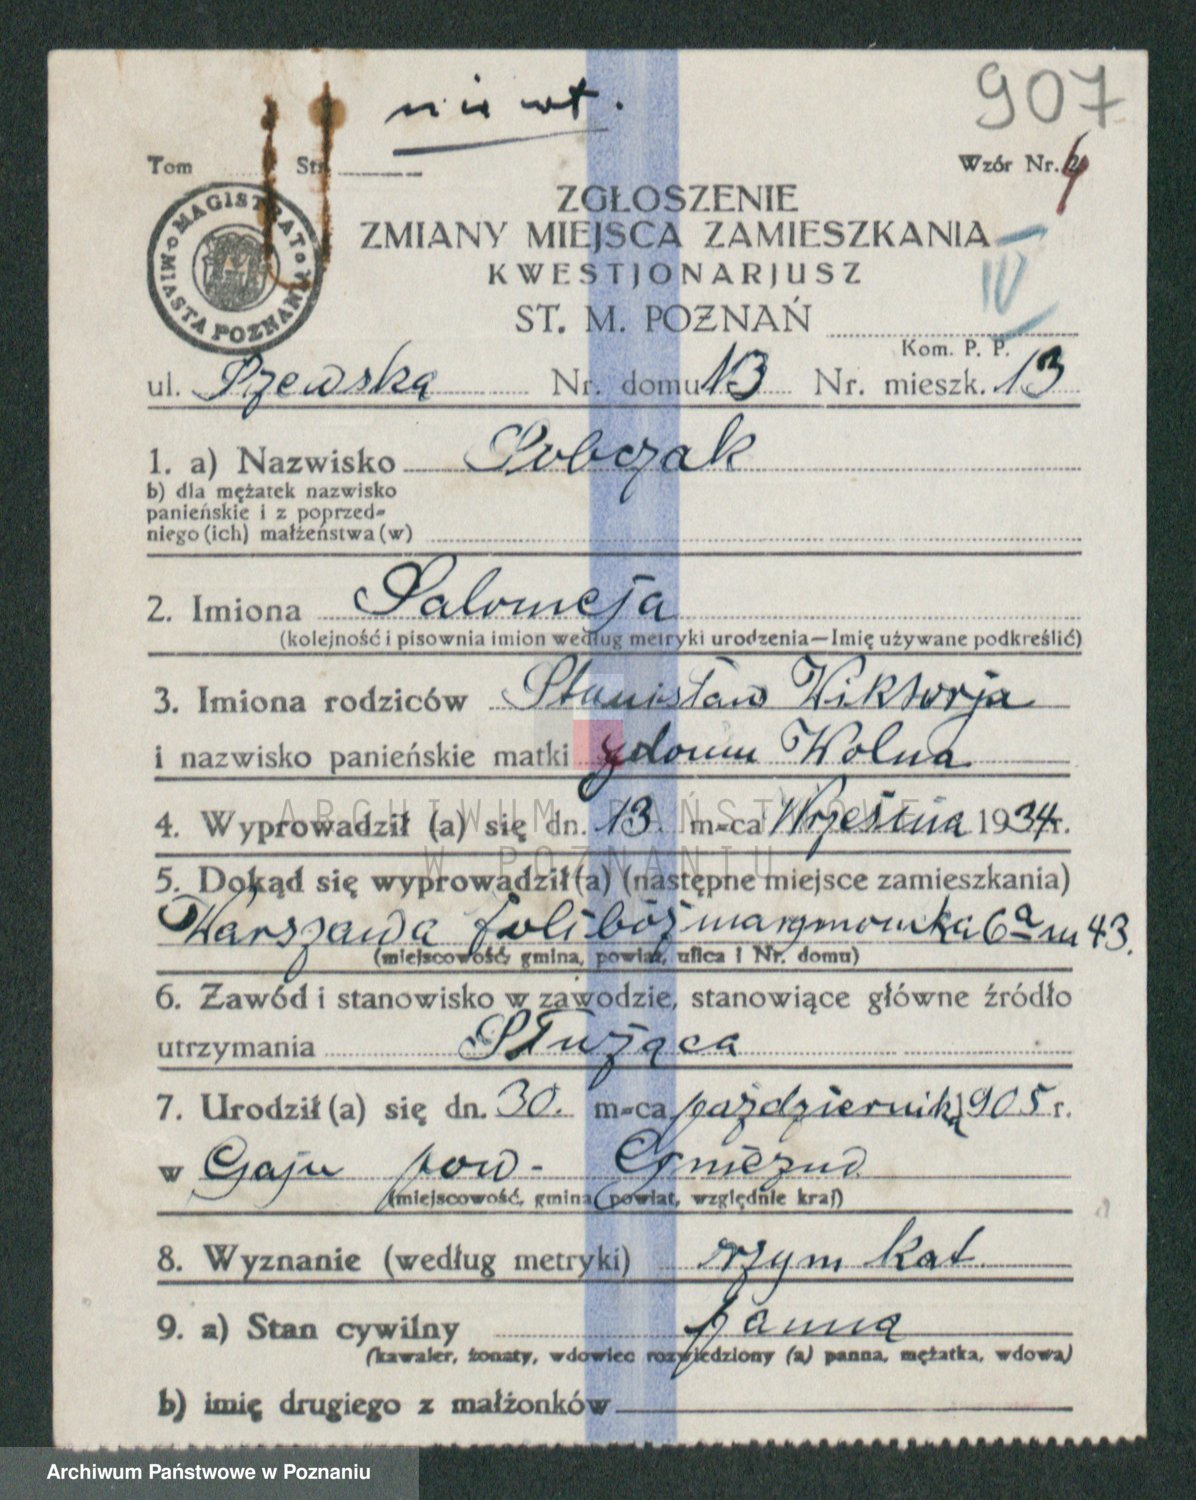 nie wt.
907
Tom Str.
Wzór Nr. 4
MAGISTRAT MIASTA POZNANIA
ZGŁOSZENIE
ZMIANY MIEJSCA ZAMIESZKANIA
KWESTJONARJUSZ
IV
ST. M. POZNAŃ
Kom. P. P.
ul. Szewska Nr. domu 13 Nr. mieszk. 13
1. a) Nazwisko Sobczak
b) dla mężatek nazwisko
panieńskie i z poprzed-
niego (ich) małżeństwa (w)
2. Imiona Salomeja
(kolejność i pisownia imion według metryki urodzenia—Imię używane podkreślić)
3. Imiona rodziców Stanisław Wiktorja
i nazwisko panieńskie matki zdomu Wolna
ARCHIWUM PAŃSTWOWE
4. Wyprowadził (a) się dn. 13. m-ca Września 1934 r.
W POZNANIU
5. Dokąd się wyprowadził (a) (następne miejsce zamieszkania)
Warszawa Żolibóż 6a m 43.
(miejscowość, gmina, powiat, ulica i Nr. domu)
6. Zawód i stanowisko w zawodzie, stanowiące główne źródło
utrzymania Służąca
7. Urodził (a) się dn. 30. m-ca października 1905 r.
w Gaju pow- Gniezno
(miejscowość, gmina, powiat, względnie kraj)
8. Wyznanie (według metryki) rzym kat.
9. a) Stan cywilny panna
(kawaler, żonaty, wdowiec rozwiedziony (a) panna, mężatka, wdowa)
b) imię drugiego z małżonków
Archiwum Państwowe w Poznaniu